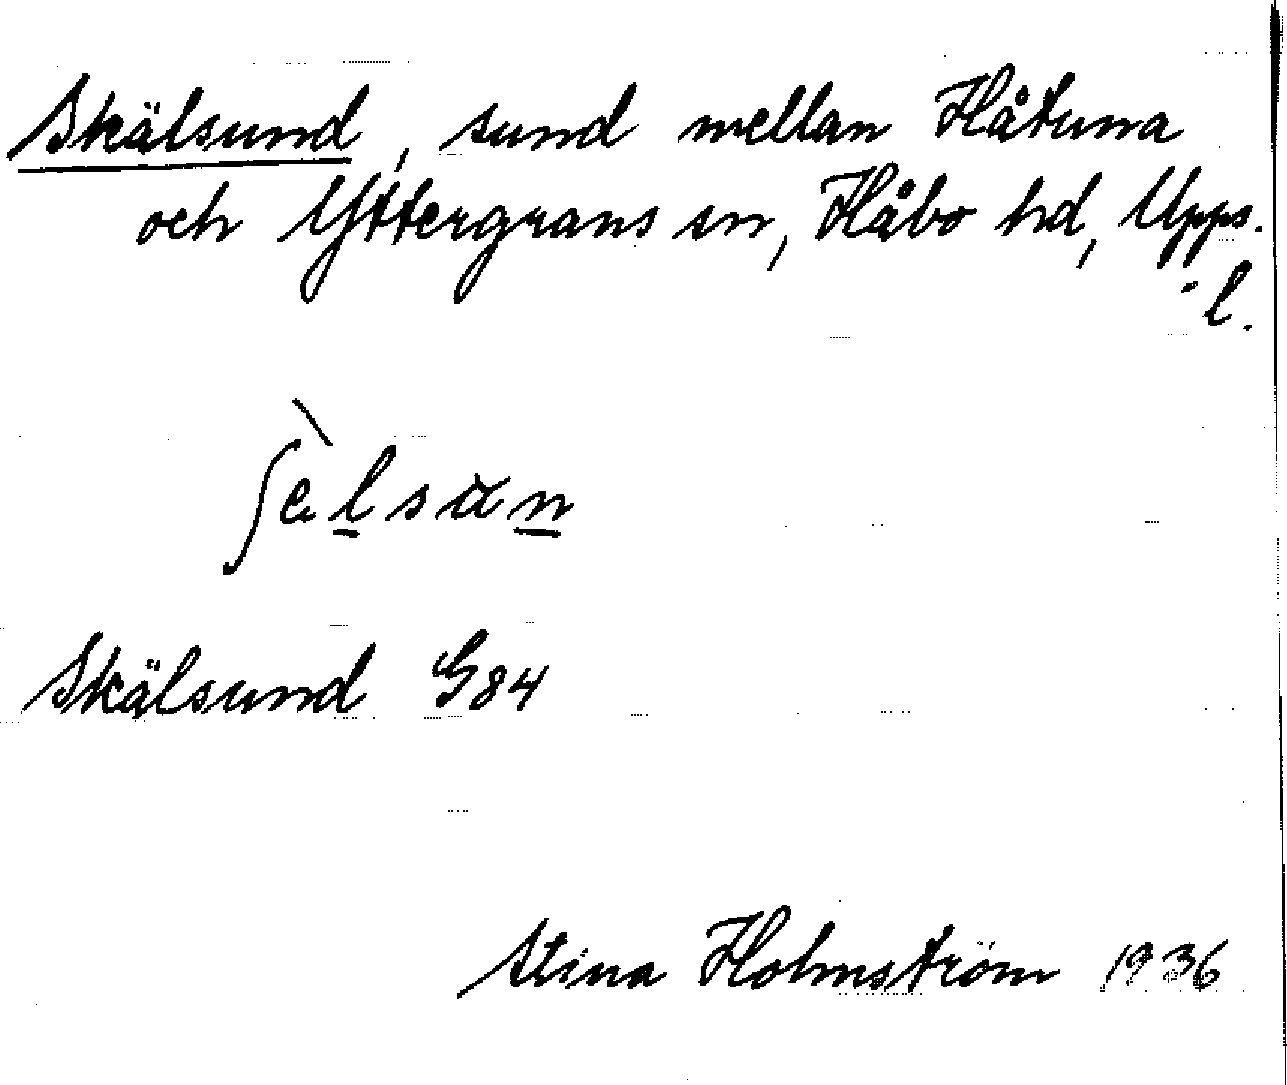 Skälsund, sund mellan Håtuna
och Yttergrans sn, Håbo hd, Upps.
l.
Skälsund G84
Stina Holmström 1936